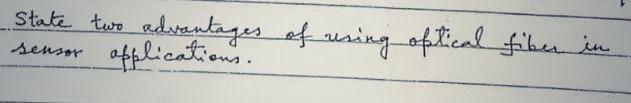 State two advantages of using optical fiber in
sensor applications.